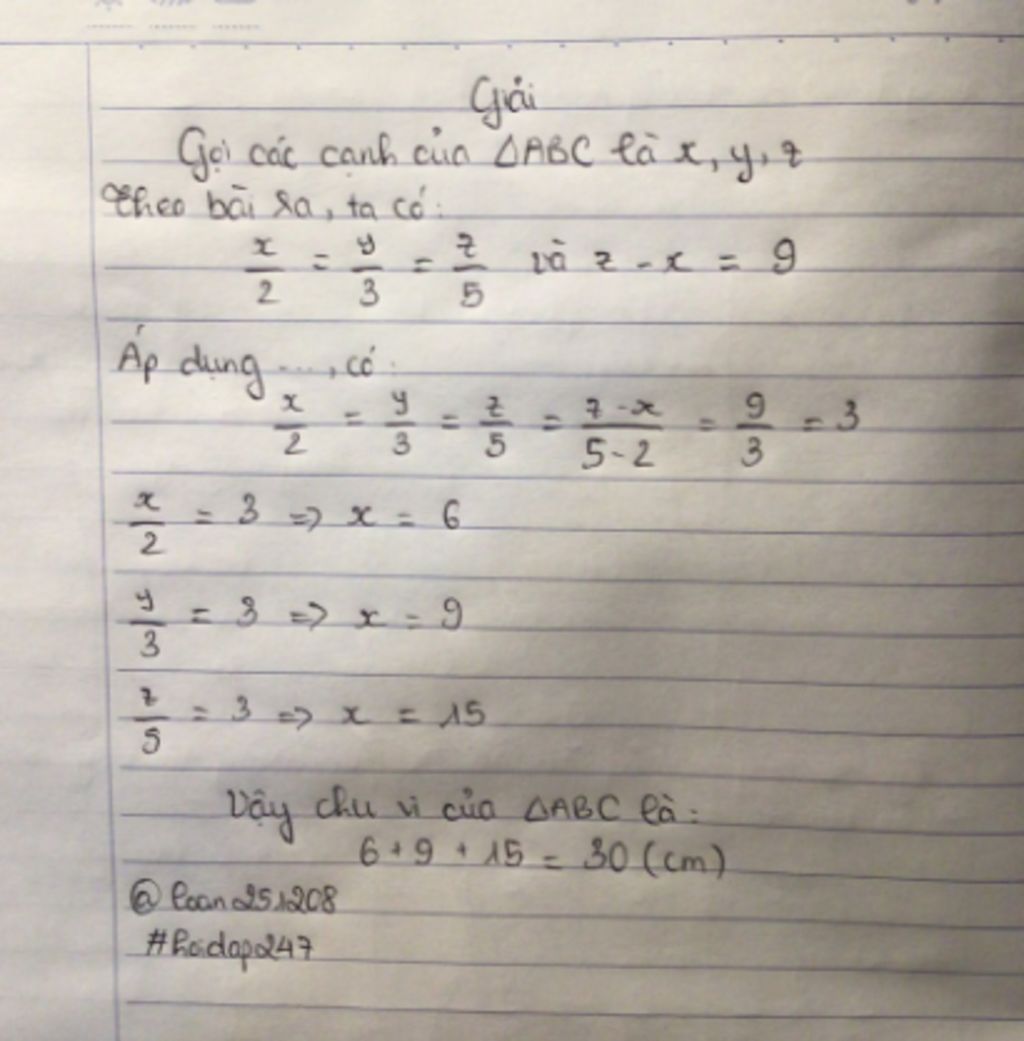 Giải
Gọi các cạnh của ΔABC là x, y, z
Theo bài ra, ta có:
x/2 = y/3 = z/5 và z - x = 9
Áp dụng ..., có:
x/2 = y/3 = z/5 = z-x/5-2 = 9/3 = 3
x/2 = 3 => x = 6
y/3 = 3 => x = 9
z/5 = 3 => x = 15
Vậy chu vi của ΔABC là:
6 + 9 + 15 = 30 (cm)
@loan251208
#hoidap247